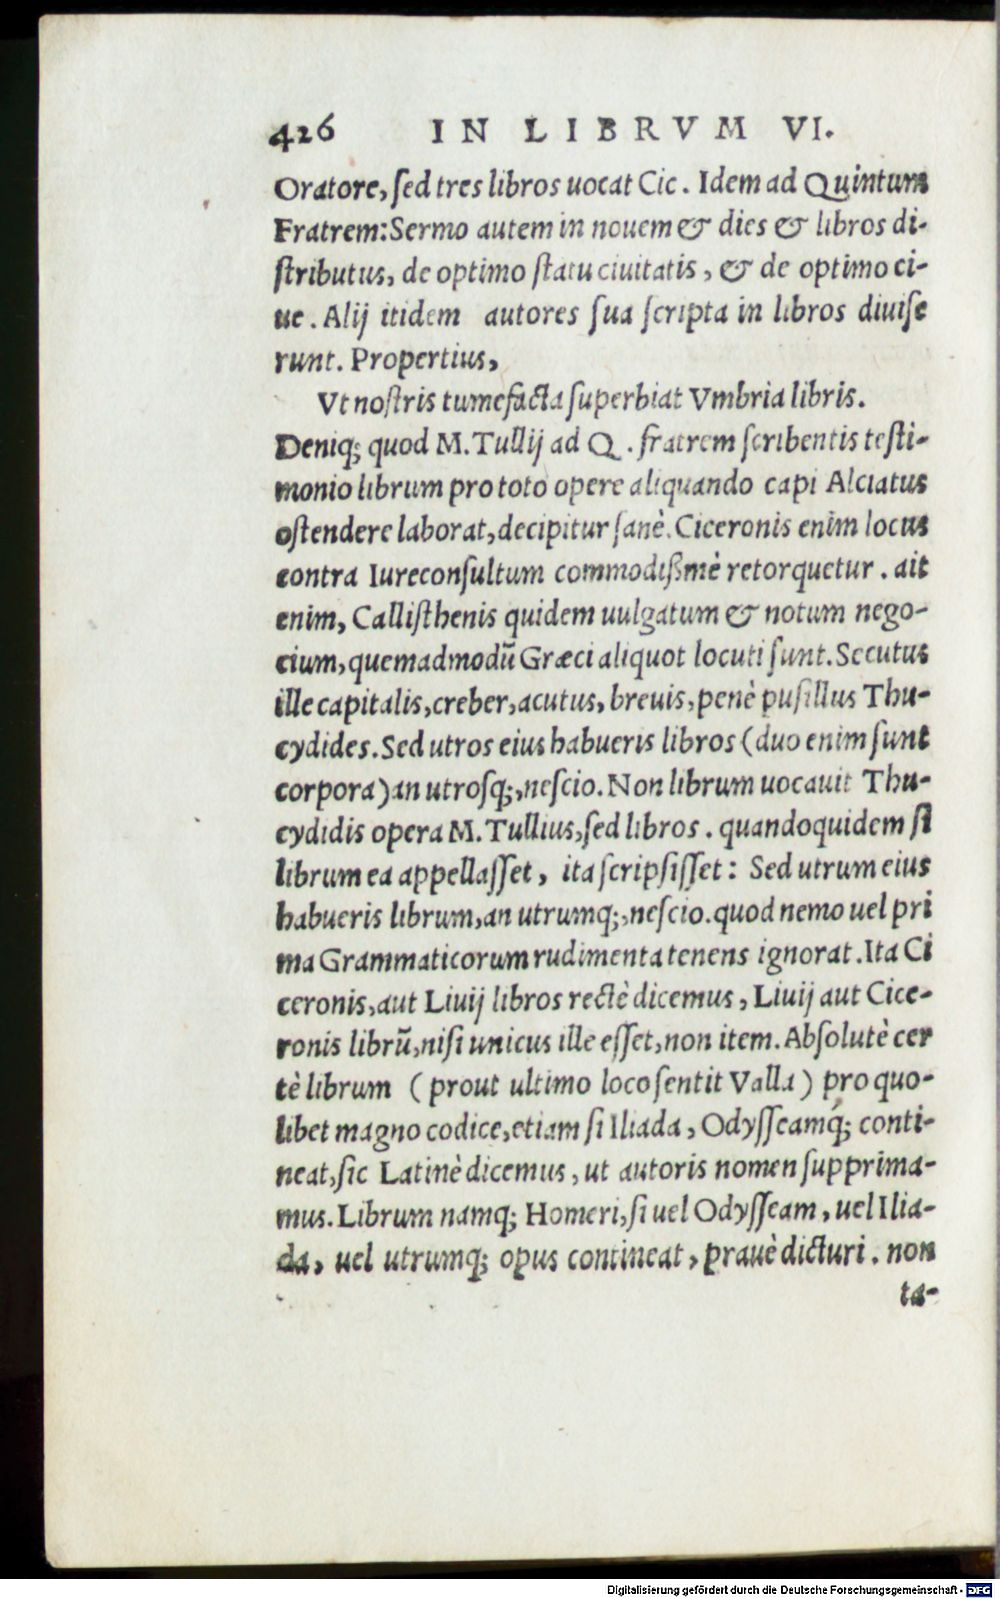 426 IN LIBRVM VI.
Oratore, ſed tres libros uocat Cic. Idem ad Quintum
Fratrem: Sermo autem in nouem & dies & libros di-
ſtributus, de optimo ſtatu ciuitatis, & de optimo ci-
ue. Alij itidem autores ſua ſcripta in libros diuiſe
runt. Propertius,
Vt noſtris tumefacta ſuperbiat Vmbria libris.
Deniq; quod M. Tullij ad Q. fratrem ſcribentis teſti-
monio librum pro toto opere aliquando capi Alciatus
oſtendere laborat, decipitur ſanè. Ciceronis enim locus
contra Iureconſultum commodißmè retorquetur. ait
enim, Calliſthenis quidem uulgatum & notum nego-
cium, quemadmodũ Græci aliquot locuti ſunt. Secutus
ille capitalis, creber, acutus, breuis, penè puſillus Thu-
cydides. Sed utros eius habueris libros (duo enim ſunt
corpora) an utroſq;, neſcio. Non librum uocauit Thu-
cydidis opera M. Tullius, ſed libros. quandoquidem ſi
librum ea appellaſſet, ita ſcripſiſſet: Sed utrum eius
habueris librum, an utrumq;, neſcio. quod nemo uel pri
ma Grammaticorum rudimenta tenens ignorat. Ita Ci
ceronis, aut Liuij libros rectè dicemus, Liuij aut Cice-
ronis librũ, niſi unicus ille eſſet, non item. Abſolutè cer
tè librum (prout ultimo loco ſentit Valla) pro quo-
libet magno codice, etiam ſi Iliada, Odyſſeamq́; conti-
neat, ſic Latinè dicemus, ut autoris nomen ſupprima-
mus. Librum namq; Homeri, ſi uel Odyſſeam, uel Ilia-
da, uel utrumq; opus contineat, prauè dicturi. non
ta-
Digitalisierung gefördert durch die Deutsche Forschungsgemeinschaft - DFG